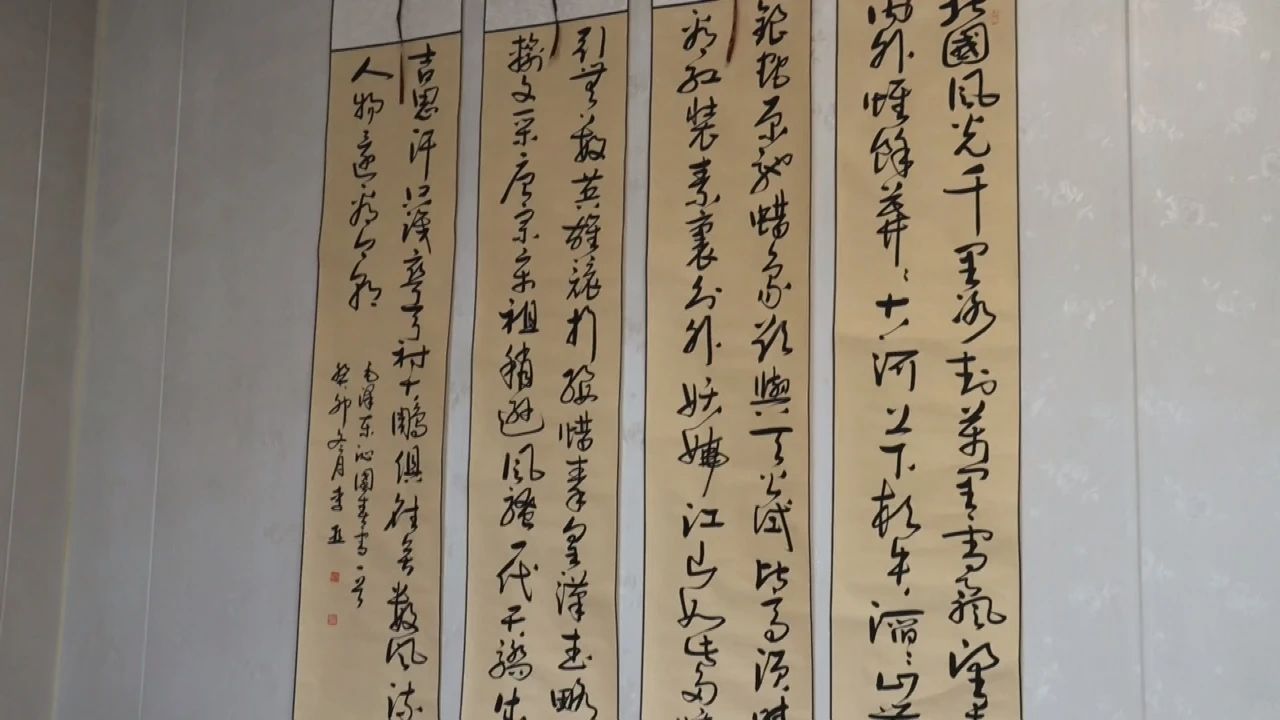 北國風光千里冰封萬里雪飄望長
内外惟餘莽〻大河上下頓失滔〻山舞
銀蛇原馳蜡象欲與天公試比高須晴
看紅裝素裹分外妖嬈江山如此多嬌
引無數英雄競折腰惜秦皇漢武略
輸文采唐宗宋祖稍遜風騷一代天驕成
吉思汗只識彎弓射大鵰俱往矣數風流
人物還看今朝
毛澤東沁園春雪一首
癸卯冬月李亚